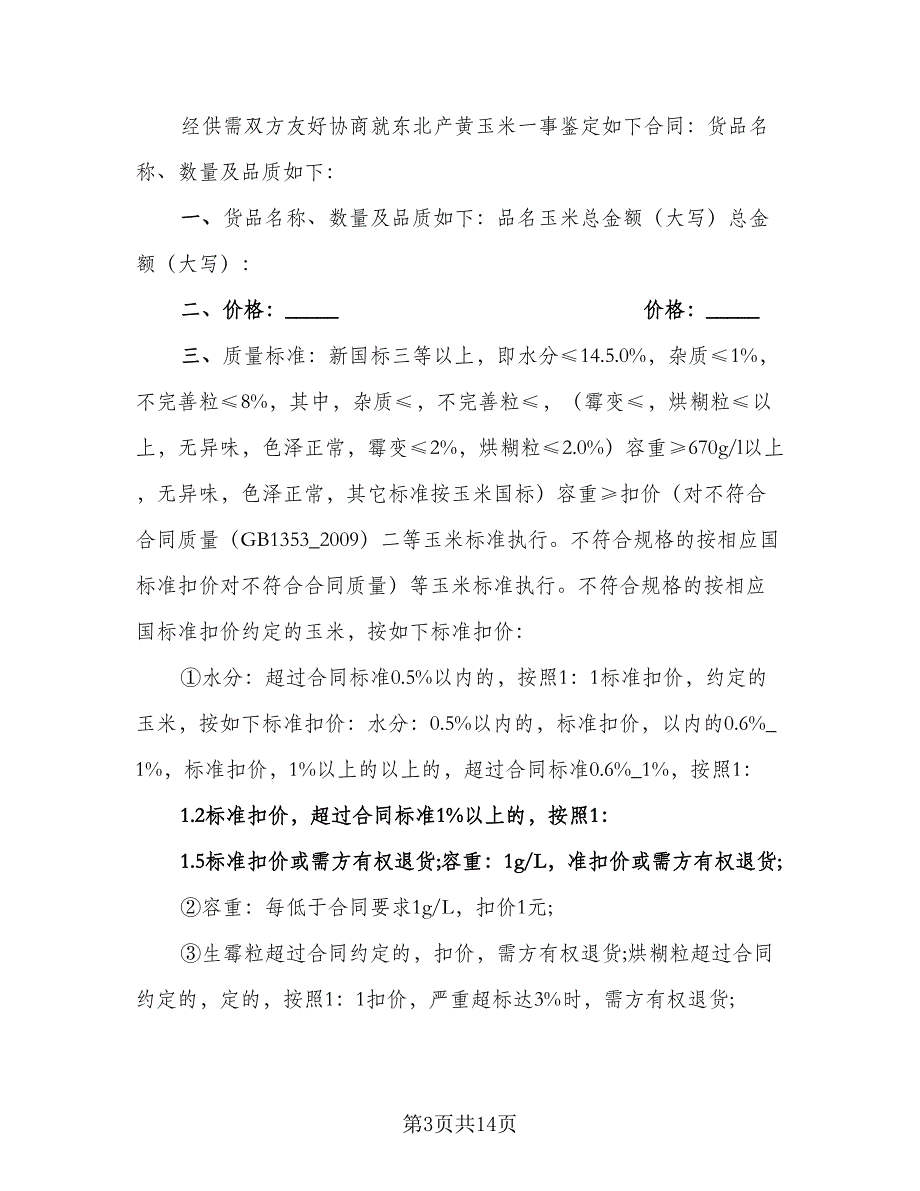 经供需双方友好协商就东北产黄玉米一事鉴定如下合同：货品名
称、数量及品质如下：
一、货品名称、数量及品质如下：品名玉米总金额（大写）总金
额（大写）：
二、价格：_____ 价格：_____
三、质量标准：新国标三等以上，即水分≤14.5.0%，杂质≤1%，
不完善粒≤8%，其中，杂质≤，不完善粒≤，（霉变≤，烘糊粒≤以
上，无异味，色泽正常，霉变≤2%，烘糊粒≤2.0%）容重≥670g/l以上
，无异味，色泽正常，其它标准按玉米国标）容重≥扣价（对不符合
合同质量（GB1353_2009）二等玉米标准执行。不符合规格的按相应国
标准扣价对不符合合同质量）等玉米标准执行。不符合规格的按相应
国标准扣价约定的玉米，按如下标准扣价：
①水分：超过合同标准0.5%以内的，按照1：1标准扣价，约定的
玉米，按如下标准扣价：水分：0.5%以内的，标准扣价，以内的0.6%_
1%，标准扣价，1%以上的以上的，超过合同标准0.6%_1%，按照1：
1.2标准扣价，超过合同标准1%以上的，按照1：
1.5标准扣价或需方有权退货;容重：1g/L，准扣价或需方有权退货;
②容重：每低于合同要求1g/L，扣价1元;
③生霉粒超过合同约定的，扣价，需方有权退货;烘糊粒超过合同
约定的，定的，按照1：1扣价，严重超标达3%时，需方有权退货;
第3页共14页